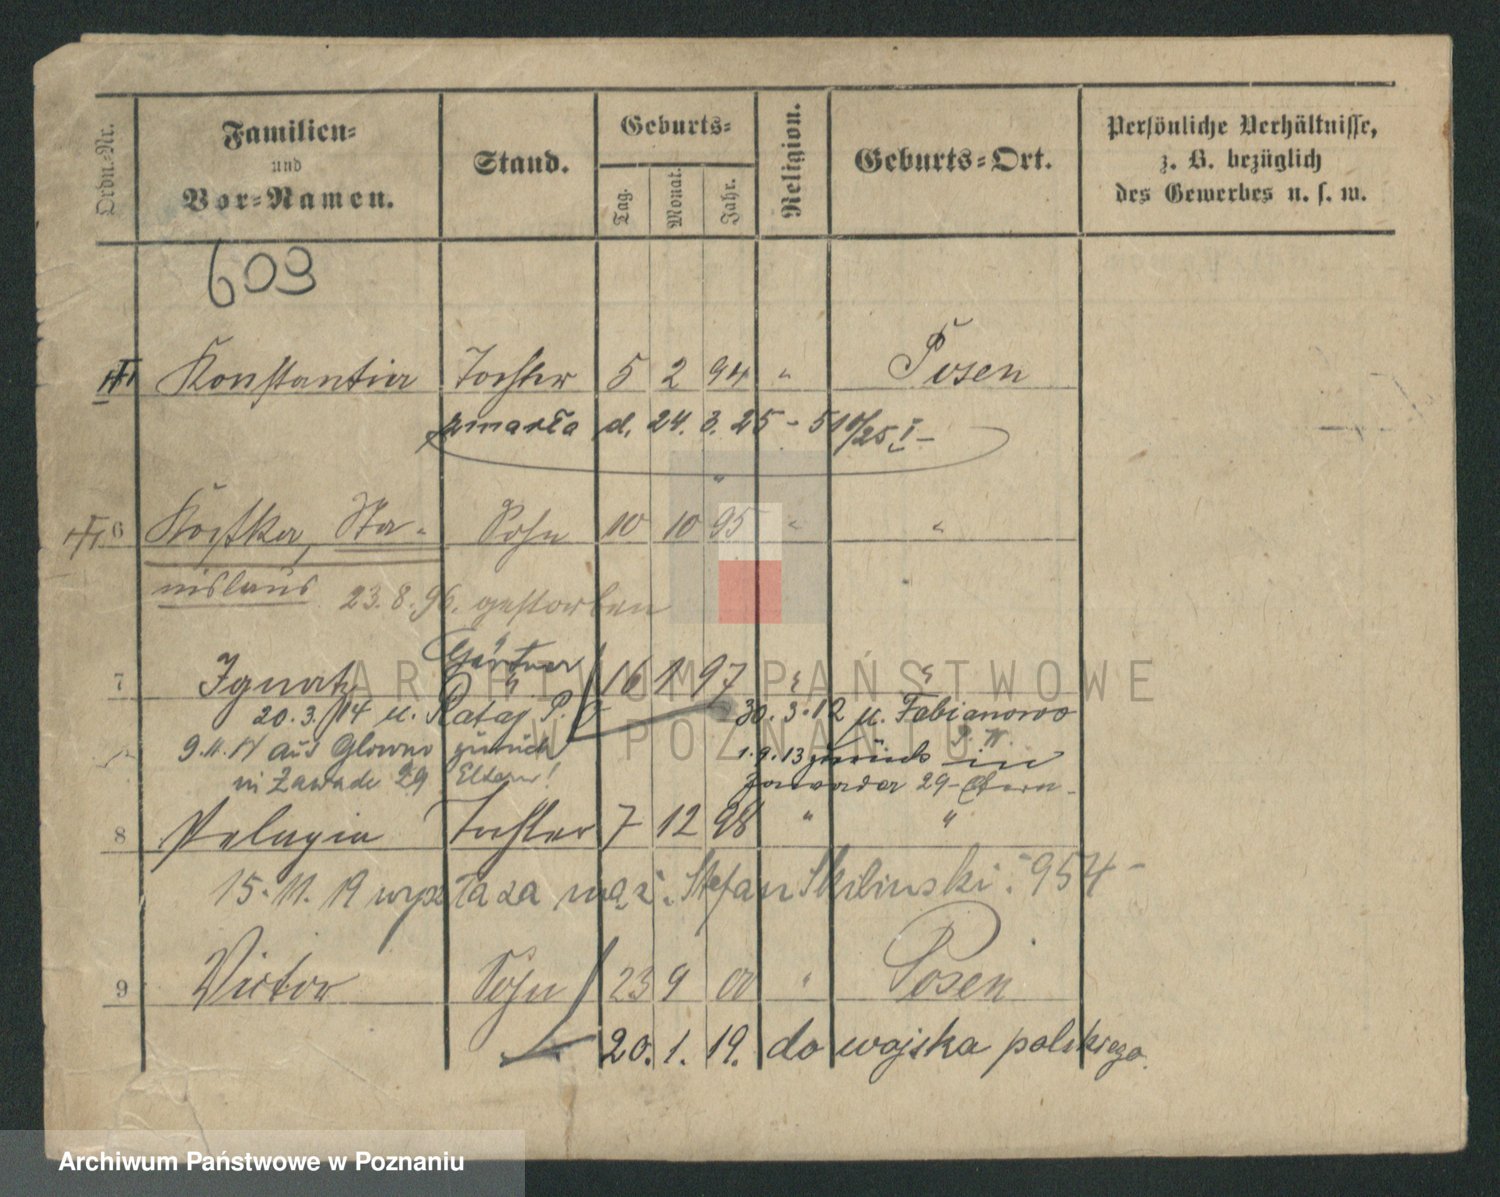 Ordn.-Nr.
Familien-
und
Vor-Namen.
Stand.
Geburts-
Tag.
Monat.
Jahr.
Religion.
Geburts-Ort.
Persönliche Verhältnisse,
z. B. bezüglich
des Gewerbes u. s. w.
609
Konstantia Tochter 5 2 94 " Posen
zmarła d. 24. 3. 25 - 510/25 I -
6 Kostka, Sta- Sohn 10 10 95 " "
nislaus 23.8.96. gestorben
Gärtner
7 Ignatz " 16 1 97 " "
20.3.14 u. Rataj P. O
30.3.12 u. Fabianowo
P. W.
9.11.14 aus Glowno zurück
1.9.13 zurück in
in Zawade 29 Eltern!
Zawader 29- Eltern-
8 Pelagia Tochter 7 12 98 " "
15.11.19 wyszła za mąż: Stefan Skibinski: 954-
9 Victor Sohn 23 9 00 " Posen
20. 1. 19. do wojska polskiego.
ARCHIWUM PAŃSTWOWE
W POZNANIU
Archiwum Państwowe w Poznaniu